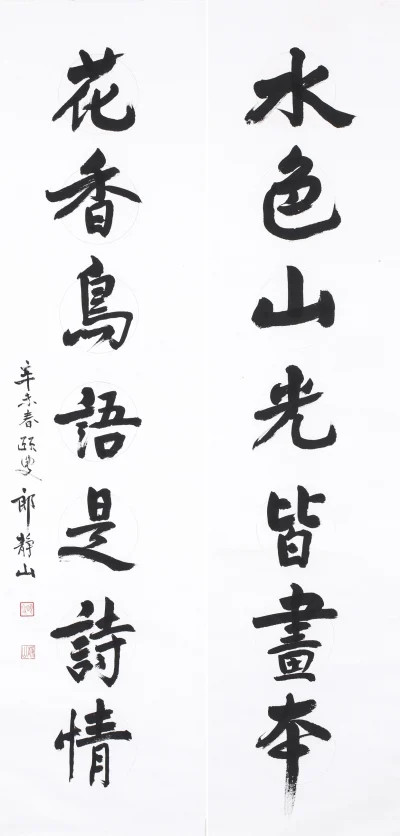 水色山光皆畫本
花香鳥語是詩情
辛未春頤叟郎靜山